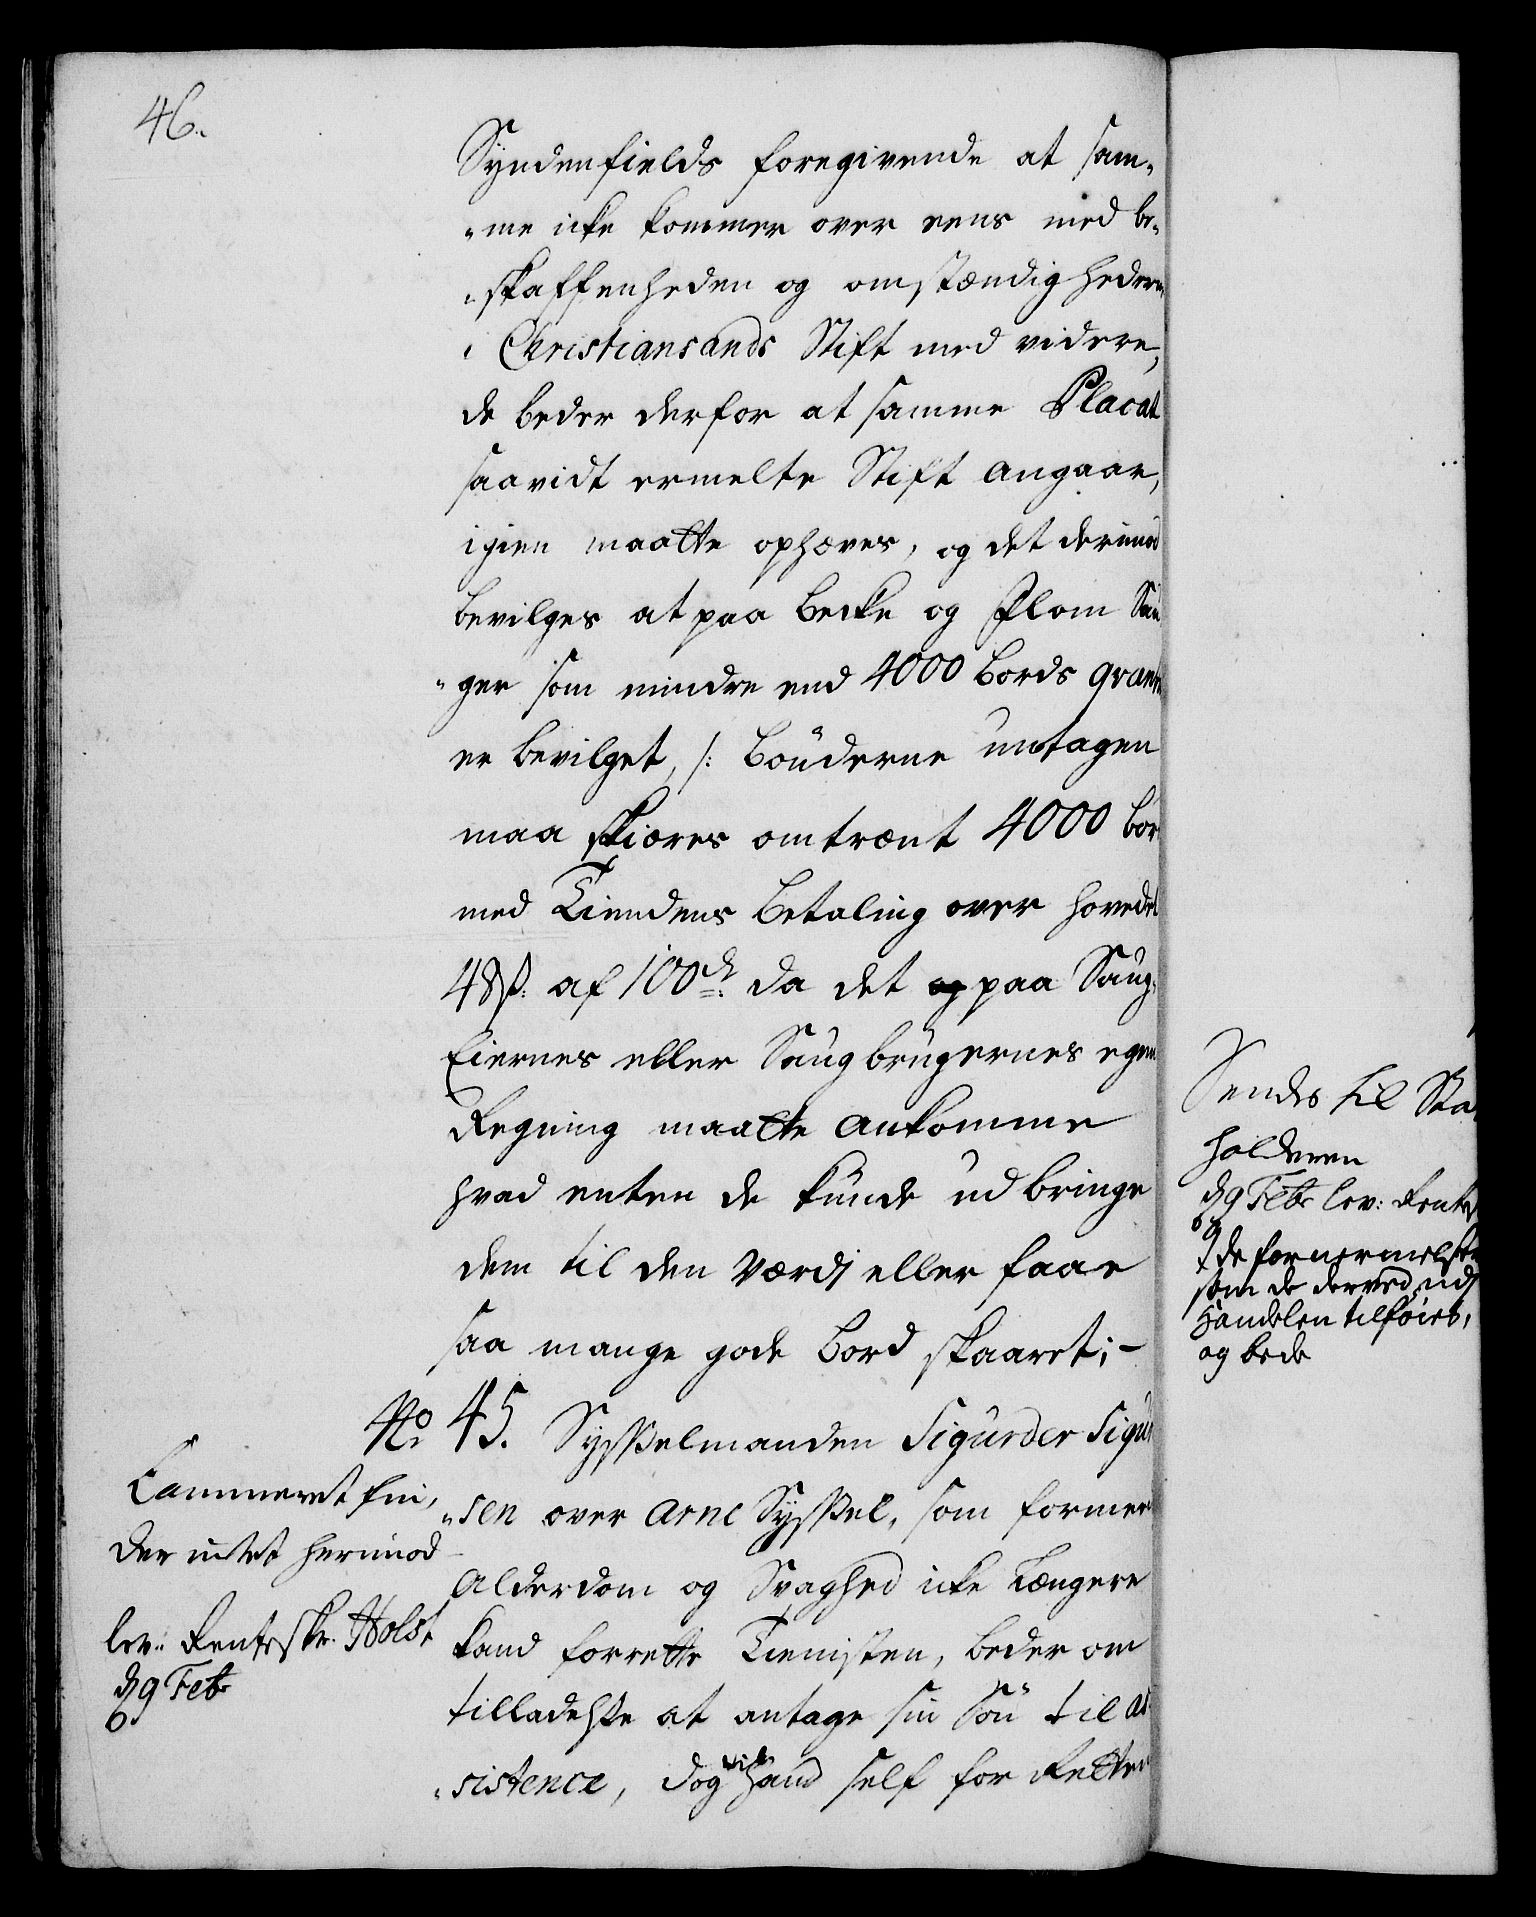 46.
Syndenfields foregivende at sam-
-me icke kommer over eens med be-
-skaffenheden og omstændigheder
i Christiansands Stift med videre,
de beder derfor at samme Placat
saavidt ermelte Stift angaar,
igien maatte ophæves, og det derimod
bevilges at paa becke og Flom Sau
-ger som mindre end 4000 bords
er bevilget, /: bönderne untagen
maa skiæres omtrænt 4000 bor
med Tiendens betaling over hovedet
48 ß: af 100de da det og paa Saug-
Eiernes eller Saugbrugernes egen
Regning maatte ankomme
hvad enten de kunde udbringe
dem til den Værdj eller faae
saa mange gode bord skaaret; -
No 45. Sysselmanden Sigurder Sigur
-sen over Arne Syssel, som formed
Alderdom og Svaghed icke længere
kand forrette Tienisten, beder om
tilladelsse at antage sin Sön til as
-sistence, dog hand self for Retten
Cammeret fin-
der intet herimod
lev: Rentsskr. Holst
d 9 Feb
Sendes til Sta
holderen
d 9 Feb lev: Rents
de fornermelser
som de derved udj
Handelen tilföies,
og bede